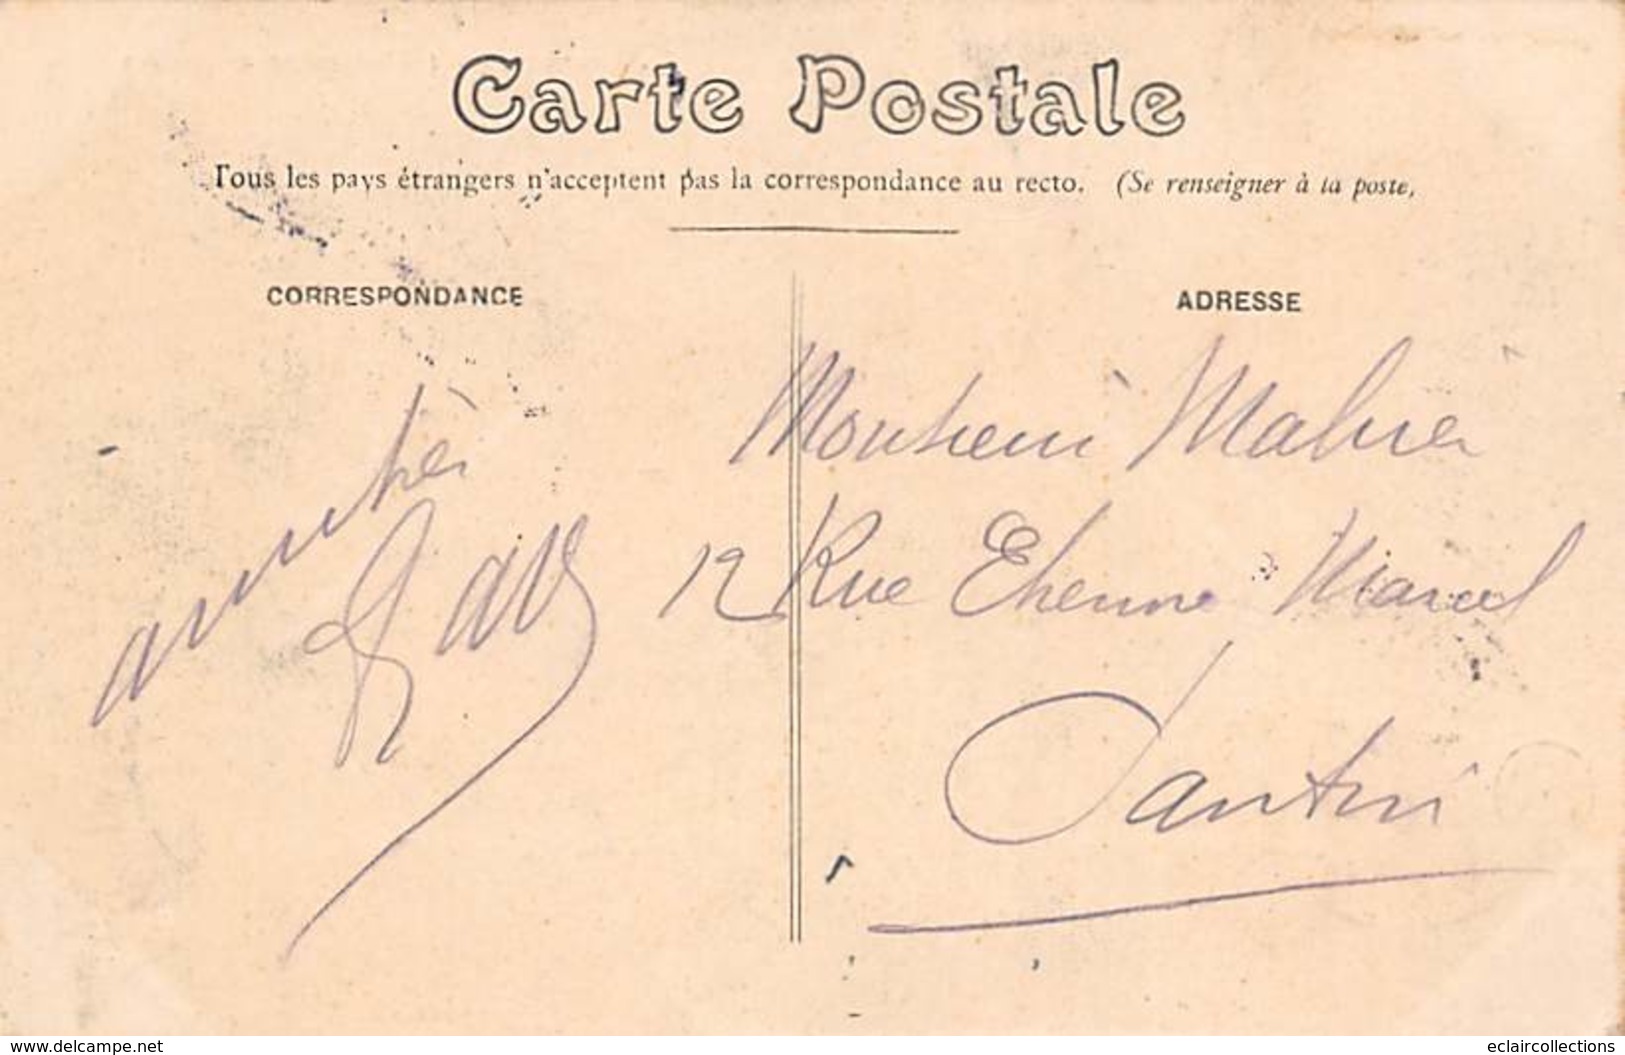 Carte Postale
Tous les pays étrangers n'acceptent pas la correspondance au recto. (Se renseigner à la poste,
CORRESPONDANCE
ADRESSE
amitiés
Monsieur Mahier
12 Rue Etienne Marcel
Pantin
www.delcampe.net
eclaircollections